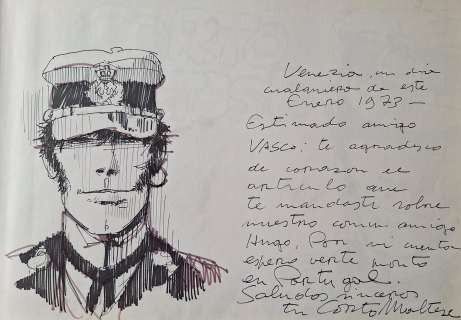 Venezia, un dia
cualquiera de este
Enero 1973 —
Estimado amigo
VASCO: te agradesco
de corazon el
articulo que
te mandaste sobre
nuestro comun amigo
Hugo. Por mi cuenta
espero verte pronto
en Portugal.
Saludos sinceros
tu Corto Maltese